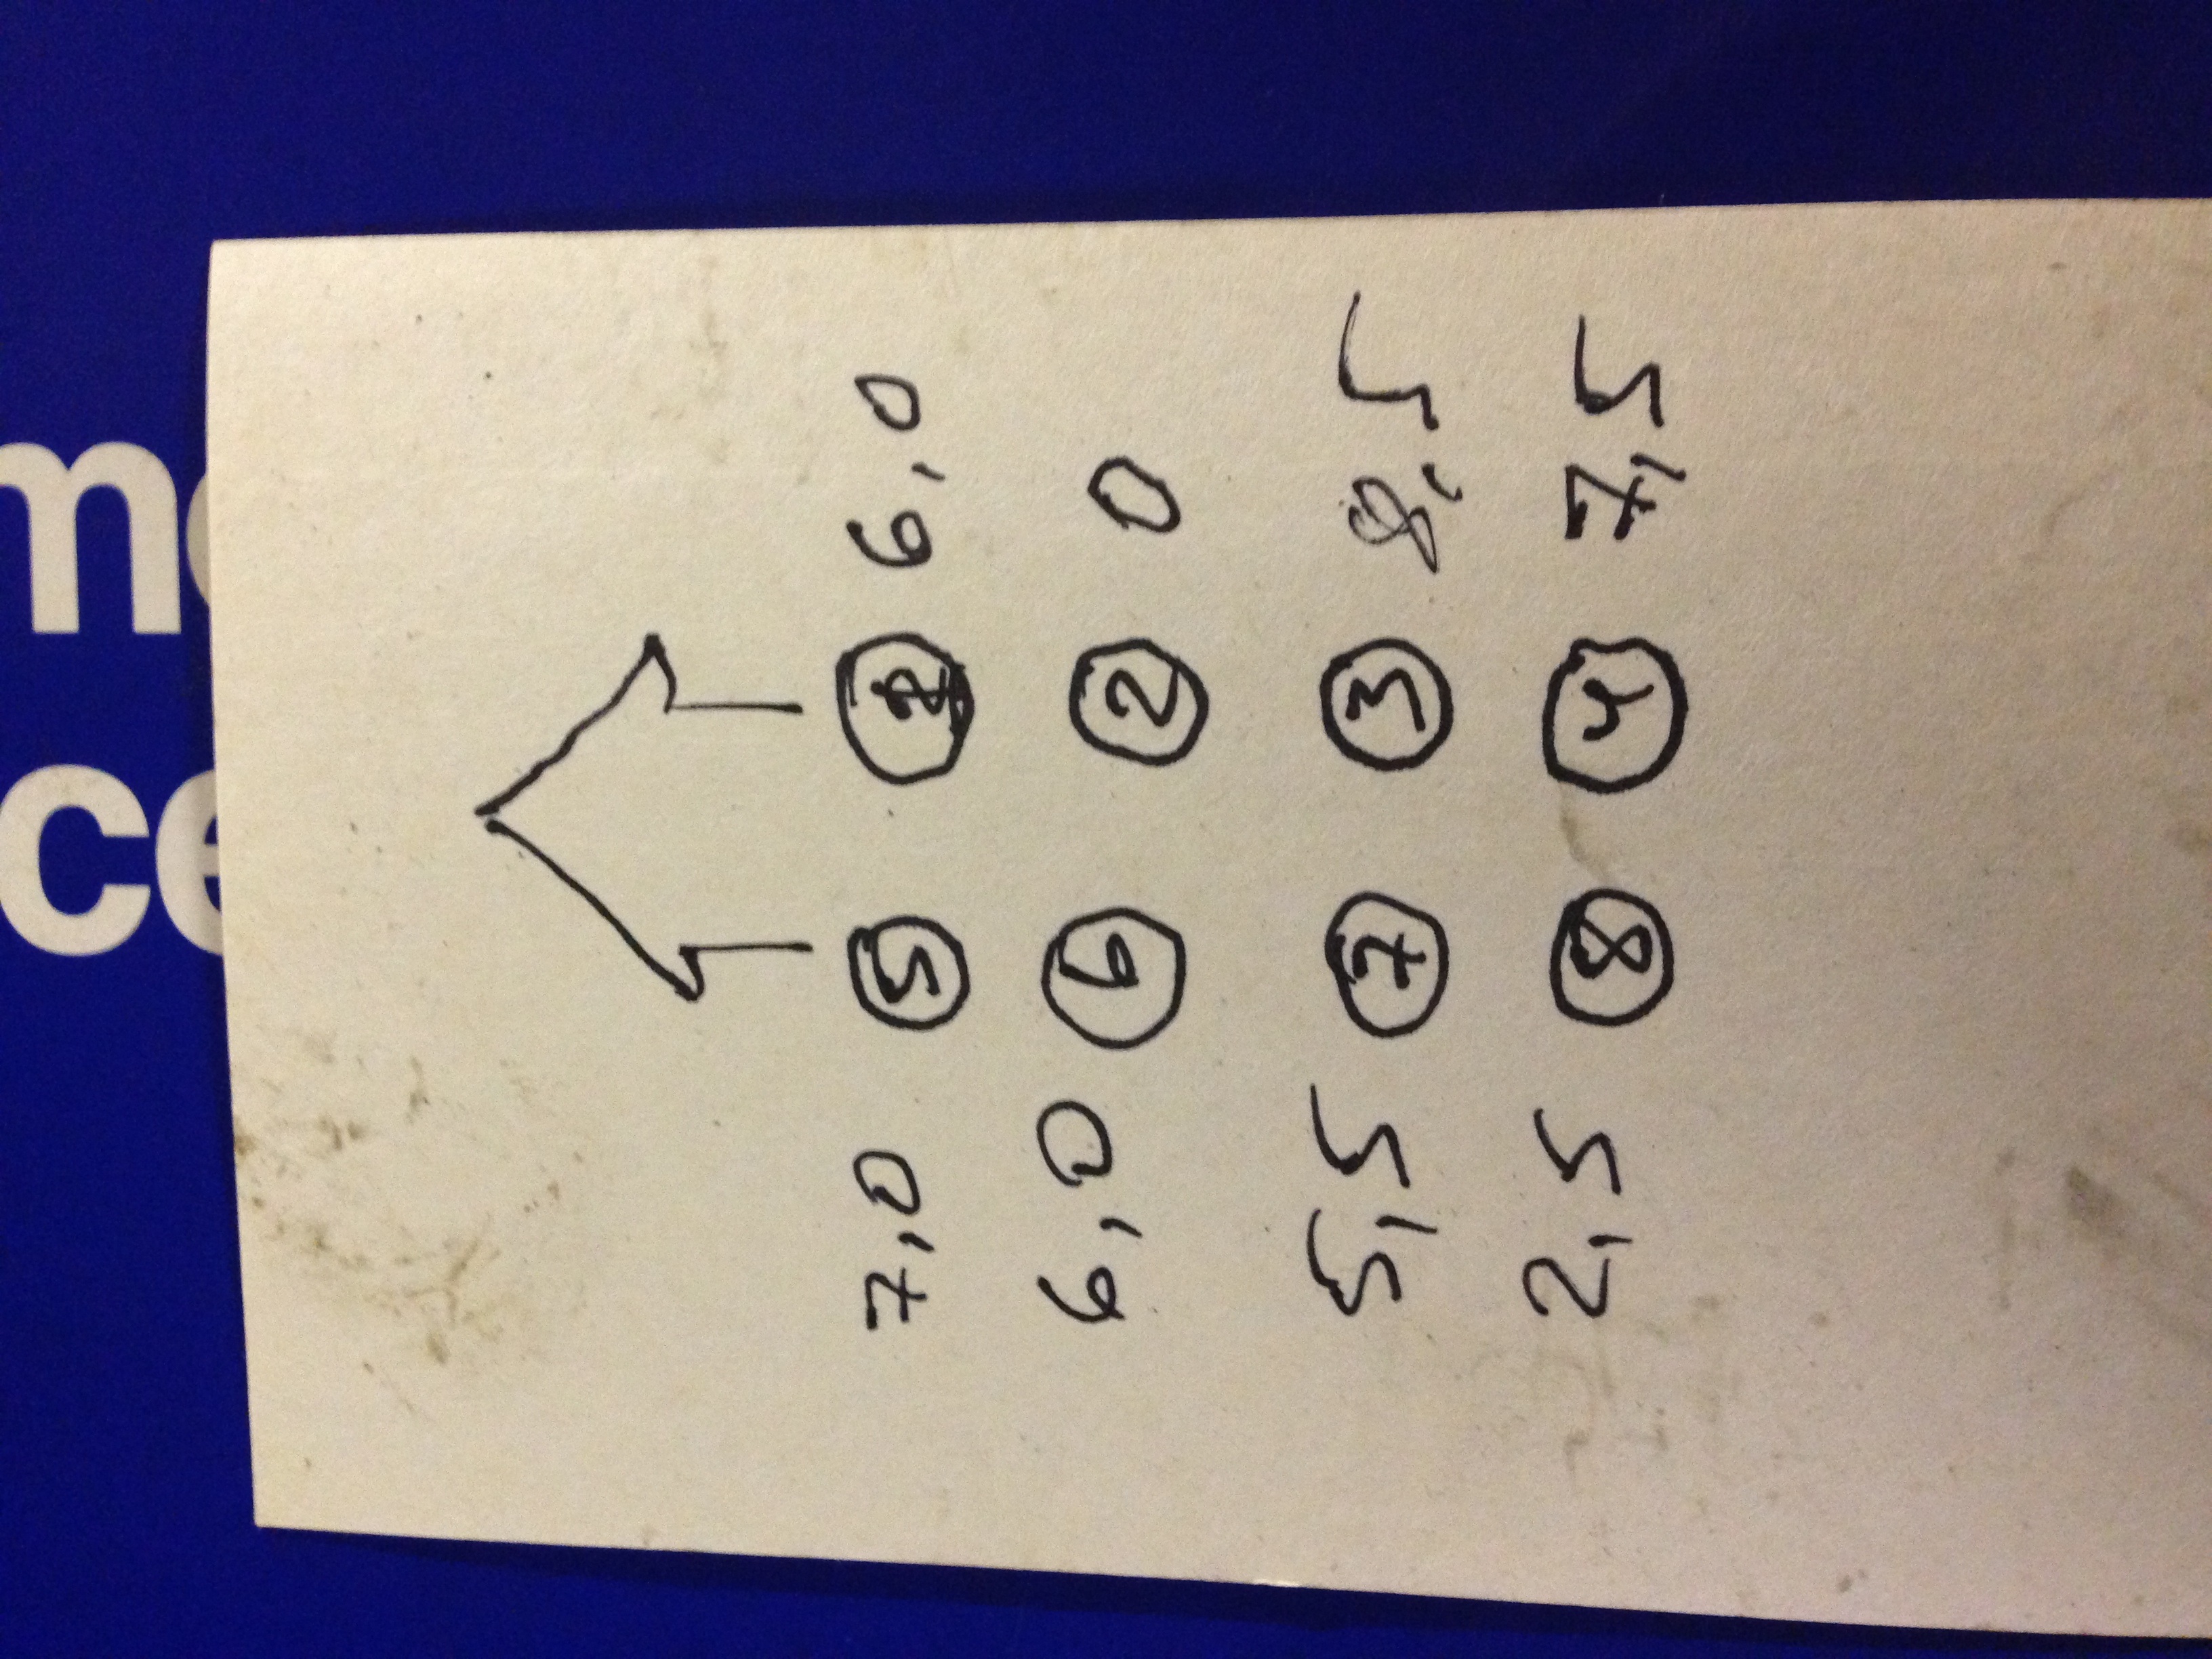 7,0 5 6,0
6,0 6 2 0
5,5 7 3 8,5
2,5 8 4 7,5
ce